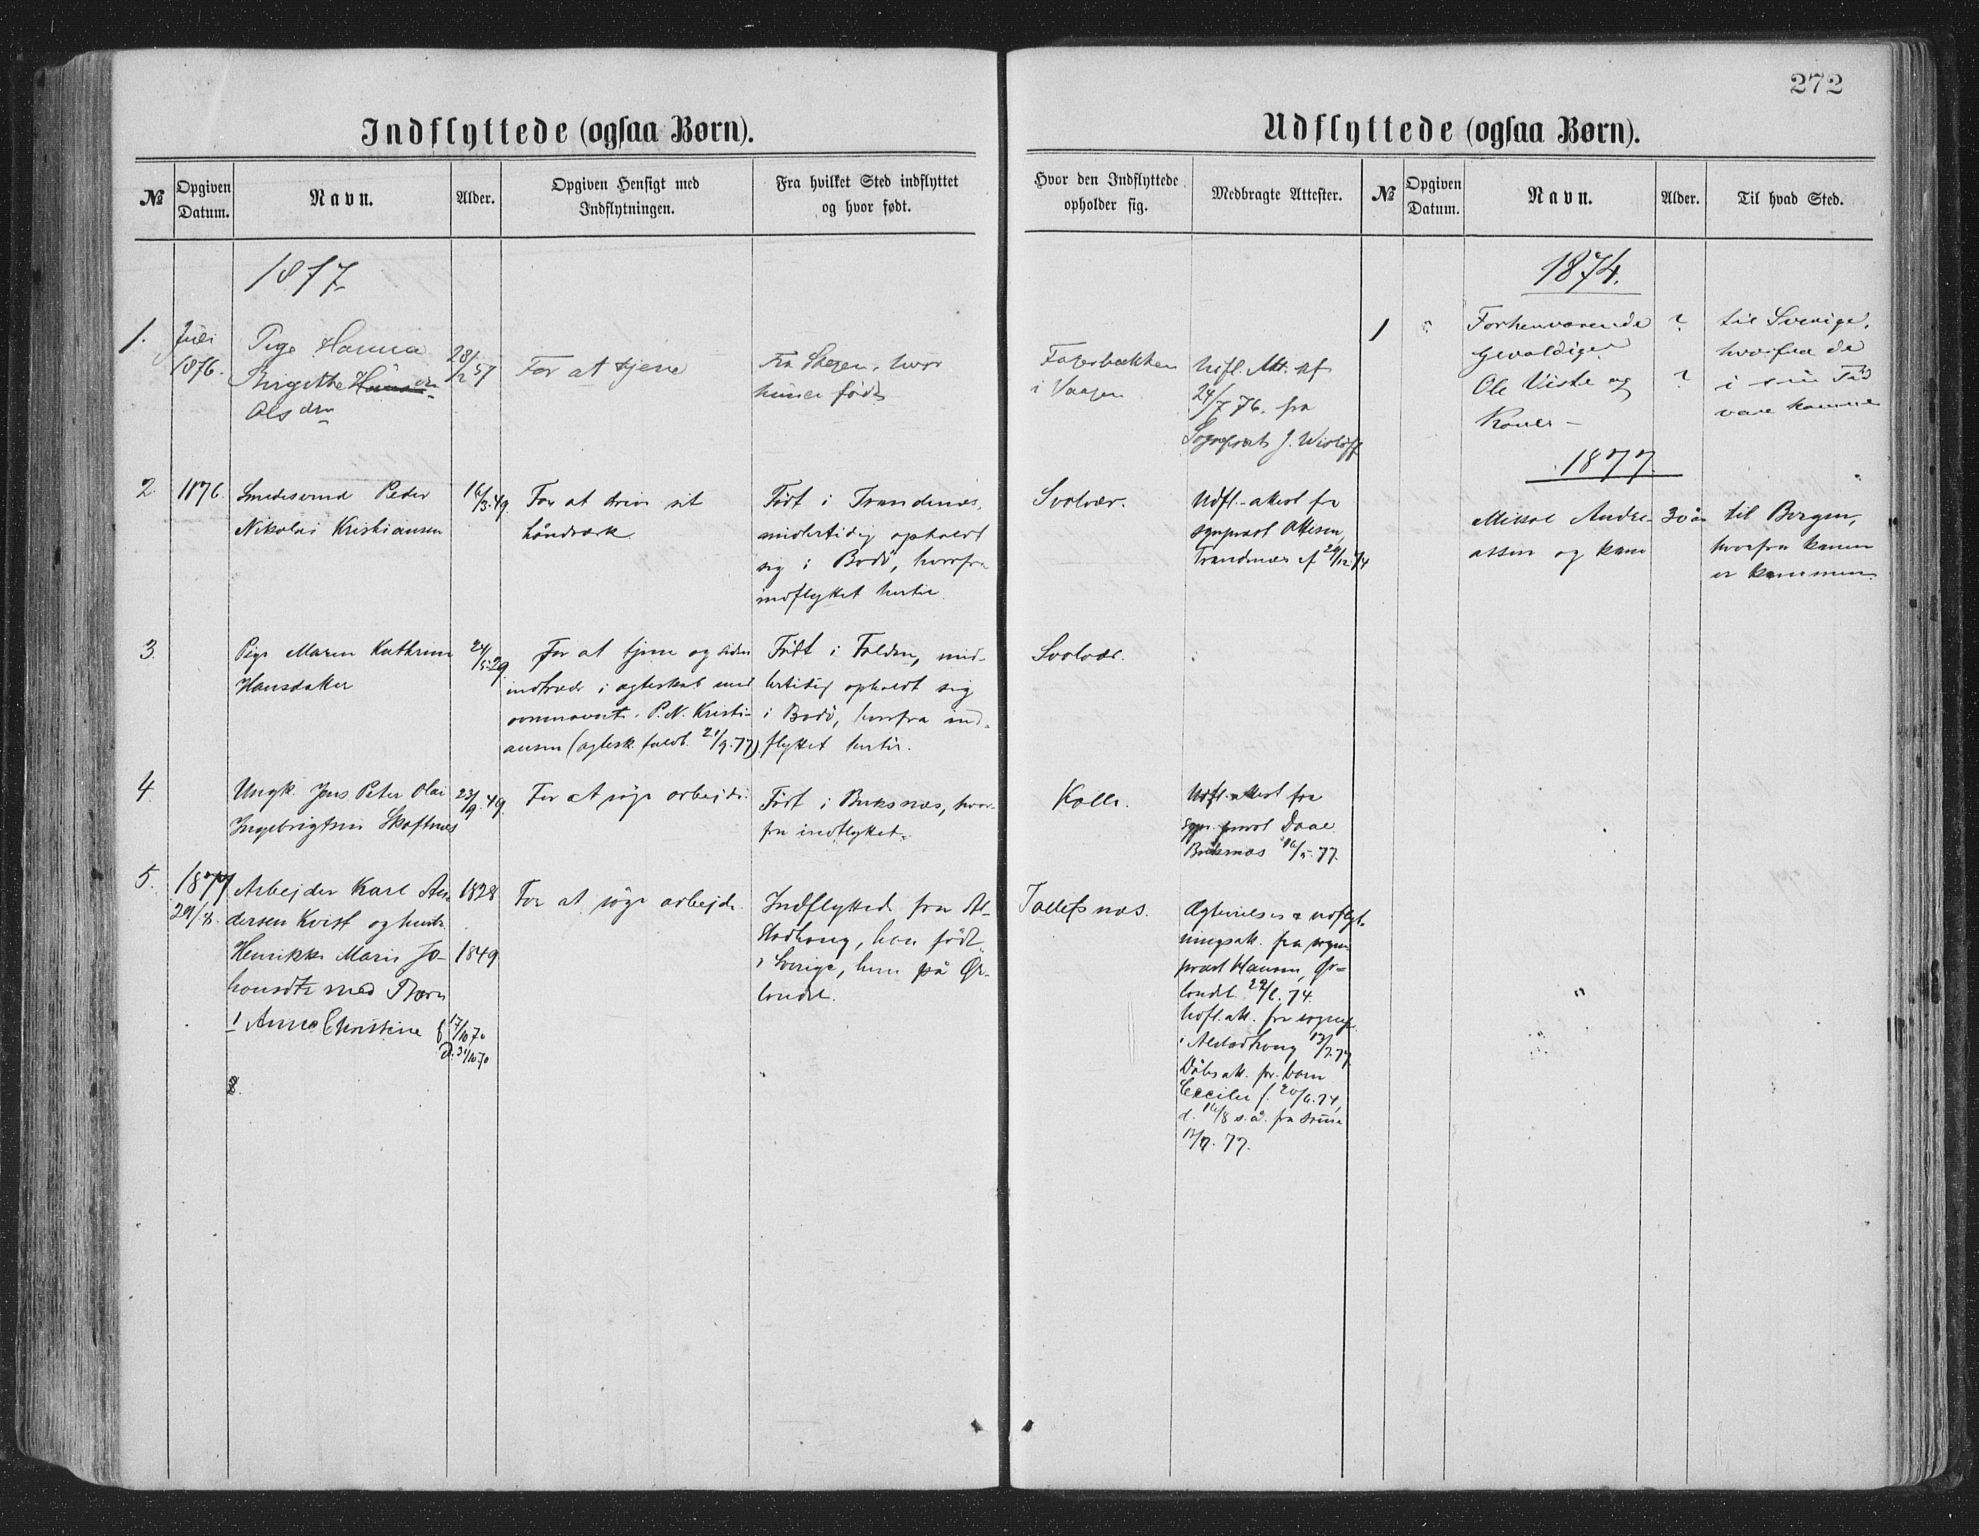 272
Indflyttede (ogsaa Børn).
Udflyttede (ogsaa Børn).
№
Opgiven Datum.
Navn.
Alder.
Opgiven Hensigt med Indflytningen.
Fra hvilket Sted indflyttet og hvor født.
Hvor den Indflyttede opholder sig.
Medbragte Attester.
№
Opgiven Datum.
Navn.
Alder.
Til hvad Sted.
1877
1. Juli 1876.
Pige Hanna
Birgitte
Olsdtr
28/12 57
For at tjene
Fra Stegen, hvor
hun er født
i Vaagen
Udfl. Att. af
24/7 76. fra
Sogneprest J. Wisløff
2. 1876.
Smedesvend Peder
Nikolai Kristiansen
16/3.49.
For at drive sit
håndværk.
Født i Trondenæs,
midlertidig opholdt
sig i Bodö, hvorfra
indflyttet hertil.
Svolvær.
Udfl.-attest fra
sognprest Ottesen,
Trondenæs af 29/12 74
3.
Pige Maren Kathrine
Hansdatter
24/5.29
For at tjene og siden
indtræde i ægteskab med
ovennævnte P. N. Kristi-
ansen (ægtesk. fuldb. 21/9.77).
Født i Folden, mid-
lertidig opholdt sig
i Bodö, hvorfra ind-
flyttet hertil.
Svolvær.
4.
Ungk. Jens Peter Olai
Ingebrigtsen Skaftnes
23/9.49.
For at søge arbejde.
Født i Buksnæs, hvor-
fra indflyttet.
Kalle.
Udfl. attest fra
sogneprest Daae
Buksnæs 16/5.77.
5. 1877
29/8.
Arbejder Karl An-
dersen Kvist og hustr.
Henrikke Marie Jo-
hansdtr med Børn
1 Anne Christine f. 17/10 70
d. 31/10 70
2.
1828
1849
For at søge arbejde.
Indflyttede fra Al-
stadhoug, han født
i Sverige, hun på Ør-
landet.
Tallefsnæs.
Ægtevielses & udflyt-
ningsatt. fra sogne-
prest Hansen, Ør-
landet 22/6.74.
Udfl. att. fra sognepr.
i Alstadhoug 13/7.77
Dåbsatt. for barn
f. 20/6.74,
d. 16/8 s. å. fra samme
13/7.77.
1874.
1 "
Forhenværende
Gevaldiger
Ole Viste og
Kone
?
?
til Sverige,
hvorfra de
i sin Tid
vare komne
1877
Mikal Andre-
assen og kone
30 år
til Bergen,
hvorfra konen
er kommen.